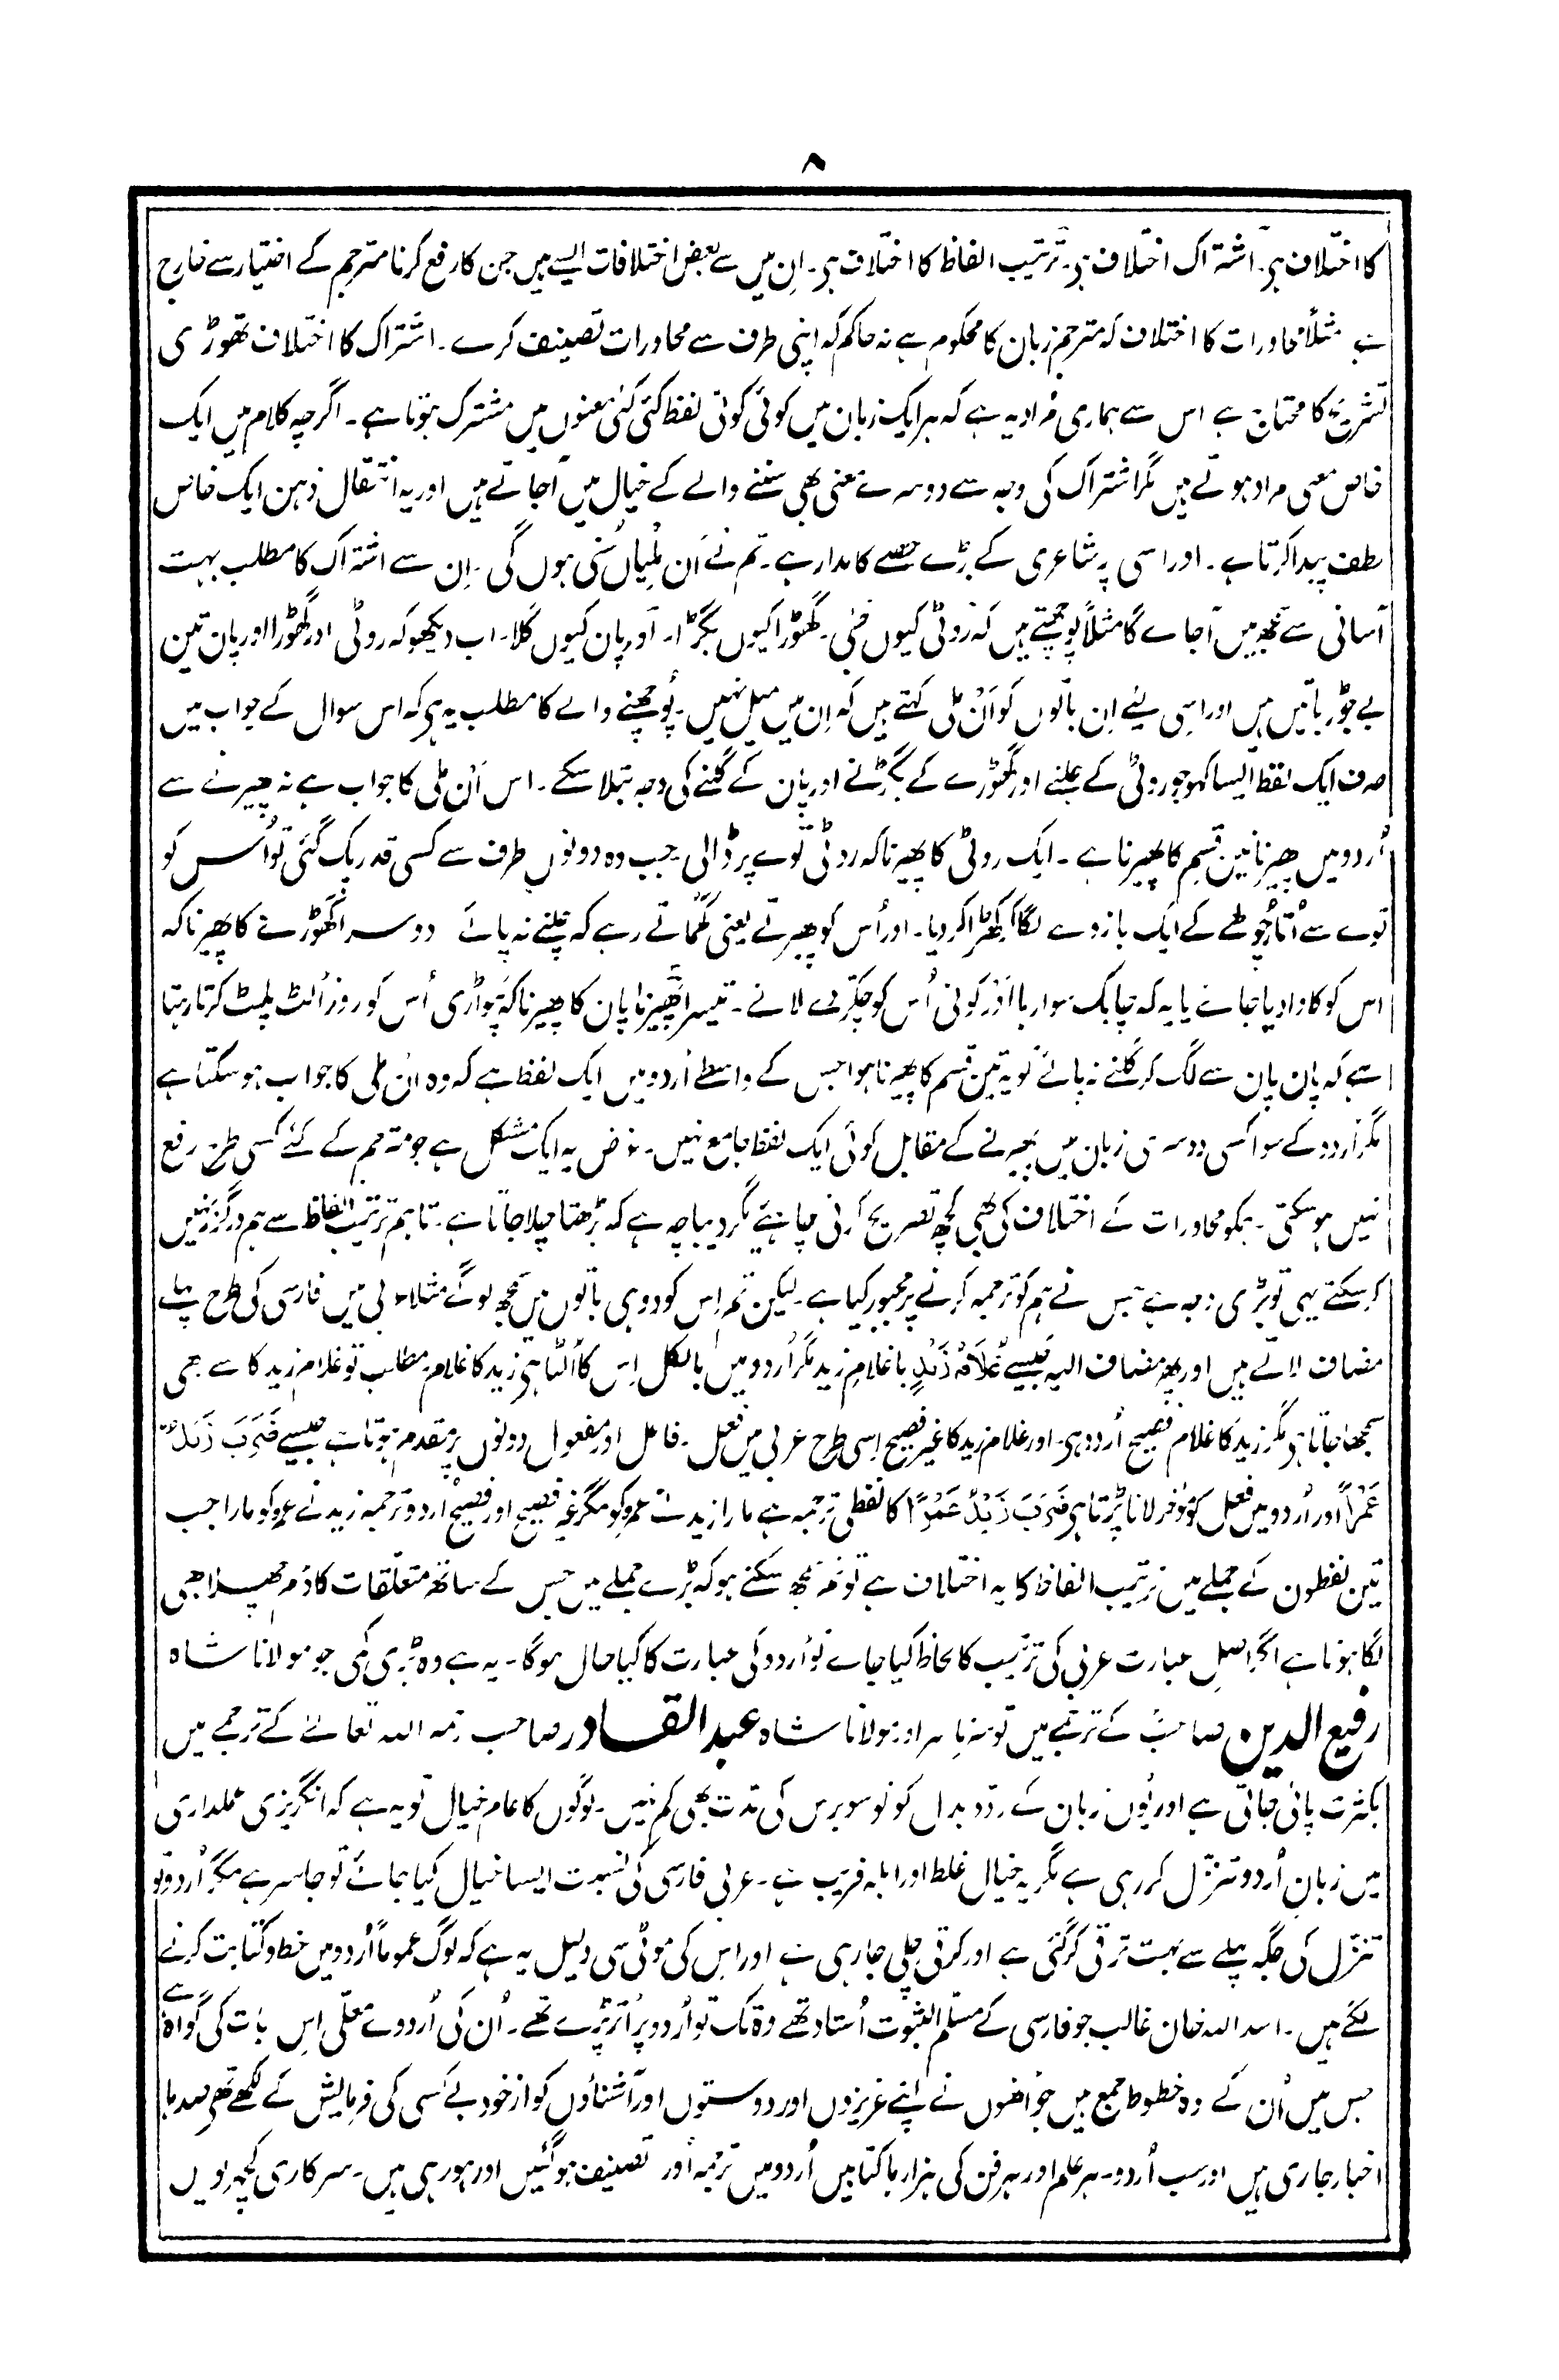 ۸
کا اختلاف ہی۔ اشتراک اختلاف ہی۔ ترتیب الفاظ کا اختلاف ہی۔ اِن میں سے بعض اختلافات ایسے ہیں جن کا رفع کرنا مترجم کے اختیار سے خارج
ہے مثلاً محاورات کا اختلاف کہ مترجم زبان کا محکوم ہے نہ حاکم کہ اپنی طرف سے محاورات تصنیف کرے۔ اشتراک کا اختلاف تھوڑی سی
تشریح کا محتاج ہے اس سے ہماری مُراد یہ ہے کہ ہر ایک زبان میں کوئی کوئی لفظ کئی کئی معنوں میں مشترک ہوتا ہے۔ اگرچہ کلام میں ایک
خاص معنی مراد ہوتے ہیں مگر اشتراک کی وجہ سے دوسرے معنی بھی سننے والے کے خیال میں آجاتے ہیں اور یہ انتقال ذہن ایک خاص
لطف پیدا کرتا ہے۔ اور اسی پر شاعری کے بڑے حصے کا مدار ہے۔ تم نے اَن مِلیاں سُنی ہوں گی۔ اِن سے اشتراک کا مطلب بہت
آسانی سے سمجھ میں آجاے گا مثلاً پوچھتے ہیں کہ روٹی کیوں جلی۔ گھوڑا کیوں بگڑا۔ اور پان کیوں گلا۔ اب دیکھو کہ روٹی اور گھوڑا اور پان تین
بے جوڑ باتیں ہیں اور اسِی لیے اِن باتوں کو اَنْ مِلی کہتے ہیں کہ اِن میں میل نہیں۔ پُوچھنے والے کا مطلب یہ ہی کہ اس سوال کے جواب میں
صرف ایک لفظ ایسا کہو جو روٹی کے جلنے اور گھوڑے کے بگڑنے اور پان کے گلنے کی وجہ بتلا سکے۔ اس اَنْ مِلی کا جواب ہے نہ پھیرنے سے
اُردو میں پھیرنا تین قسم کا پھیرنا ہے۔ ایک روٹی کا پھیرنا کہ روٹی توے پر ڈالی جب وہ دونوں طرف سے کسی قدر پک گئی تو اُس کو
توے سے اُتار چُولھے کے ایک بازو سے لگا کر کھڑا کر دیا۔ اور اُس کو پھیرتے یعنی گھُماتے رہے کہ جلنے نہ پائے دوسرا گھوڑے کا پھیرنا کہ
اس کو کاوا دیا جاے یا یہ کہ چابک سوار یا اَور کوئی اُس کو چکّر دے لائے۔ تیسرا پھیرنا پان کا پھیرنا کہ پنواڑی اُس کو روز اُلٹ پلٹ کرتا رہتا
ہے کہ پان پان سے لگ کر گلنے نہ پائے تو یہ تین قسم کا پھیرنا ہوا جس کے واسطے اُردو میں ایک لفظ ہے کہ وہ ان مِلی کا جواب ہو سکتا ہے
مگر اُردو کے سوا کسی دوسری زبان میں پھیرنے کے مقابل کوئی ایک لفظ جامع نہیں۔ غرض یہ ایک مشکل ہے جو مترجم کے کئے کسی طرح رفع
نہیں ہو سکتی۔ ہمکو محاورات کے اختلاف کی بھی کچھ تصریح کرنی چاہئے مگر دیباچہ ہے کہ بڑھتا چلا جاتا ہے۔ تاہم ترتیب الفاظ سے ہم درگزر نہیں
کر سکتے یہی تو بڑی وجہ ہے جس نے ہم کو ترجمہ کرنے پر مجبور کیا ہے۔ لیکن تم اِس کو دو ہی باتوں میں سمجھ لوگے مثلاً عربی میں فارسی کی طرح پہلے
مضاف لاتے ہیں اور پھر مضاف الیہ جیسے غُلَامُ زَیْدٍ یا غلامِ زید مگر اُردو میں بالکل اِس کا اُلٹا ہی زید کا غلام۔ مطلب تو غلام زید کا سے بھی
سمجھا جاتا ہی مگر زید کا غلام فصیح اُردو ہی۔ اور غلام زید کا غیر فصیح اِسی طرح عربی میں فعل۔ فاعل اور مفعول دونوں پر مقدم ہوتا ہے جیسے ضَرَبَ زَیْدٌ
عَمْراً اور اُردو میں فعل کو مؤخر لانا پڑتا ہی ضَرَبَ زَیْدٌ عَمْرًا کا لفظی ترجمہ ہے مارا زید نے عمرو کو مگر غیر فصیح اور فصیح اردو ترجمہ زید نے عمرو کو مارا جب
تین لفظوں کے جملے میں ترتیب الفاظ کا یہ اختلاف ہے تو تم سمجھ سکتے ہو کہ بڑے جملے میں جس کے ساتھ متعلّقات کا دُم چھلّا بھی
لگا ہوتا ہے اگر اصل عبارت عربی کی ترتیب کا لحاظ کیا جاے تو اُردو کی عبارت کا کیا حال ہوگا۔ یہ ہے وہ بڑی کمی جو مولانا شاہ
رفیع الدین صاحبؒ کے ترجمے میں تو سرتاسر اور مولانا شاہ عبدالقادر صاحب رحمہ اللہ تعالےٰ کے ترجمے میں
بکثرت پائی جاتی ہے اور یُوں زبان کے ردّ و بدل کو تو سو برس کی مدت بھی کم نہیں۔ لوگوں کا عام خیال تو یہ ہے کہ انگریزی عملداری
میں زبانِ اُردو تنزّل کر رہی ہے مگر یہ خیال غلط اور ابلہ فریب ہے۔ عربی فارسی کی نسبت ایسا خیال کیا جائے تو جاسر ہے مگر اُردو تو
تنزّل کی جگہ پہلے سے بہت ترقی کر گئی ہے اور کرتی چلی جا رہی ہے اور اس کی موٹی سی دلیل یہ ہے کہ لوگ عموماً اُردو میں خط و کتابت کرنے
لگے ہیں۔ اسد اللہ خان غالب جو فارسی کے مسلّم الثبوت اُستاد تھے وہ تک تو اُردو پر اُتر پڑے تھے۔ اُن کی اُردوے معلّی اِس بات کی گواہ ہے
جس میں اُن کے وہ خطوط جمع ہیں جو اُنھوں نے اپنے عزیزوں اور دوستوں اور آشناؤں کو از خود بے کسی کی فرمایش کے لکھے تھے صدہا
اخبار جاری ہیں اور سب اُردو۔ ہر علم اور ہر فن کی ہزارہا کتابیں اُردو میں ترجمہ اَور تصنیف ہوگئیں اور ہو رہی ہیں۔ سرکاری کچہریوں